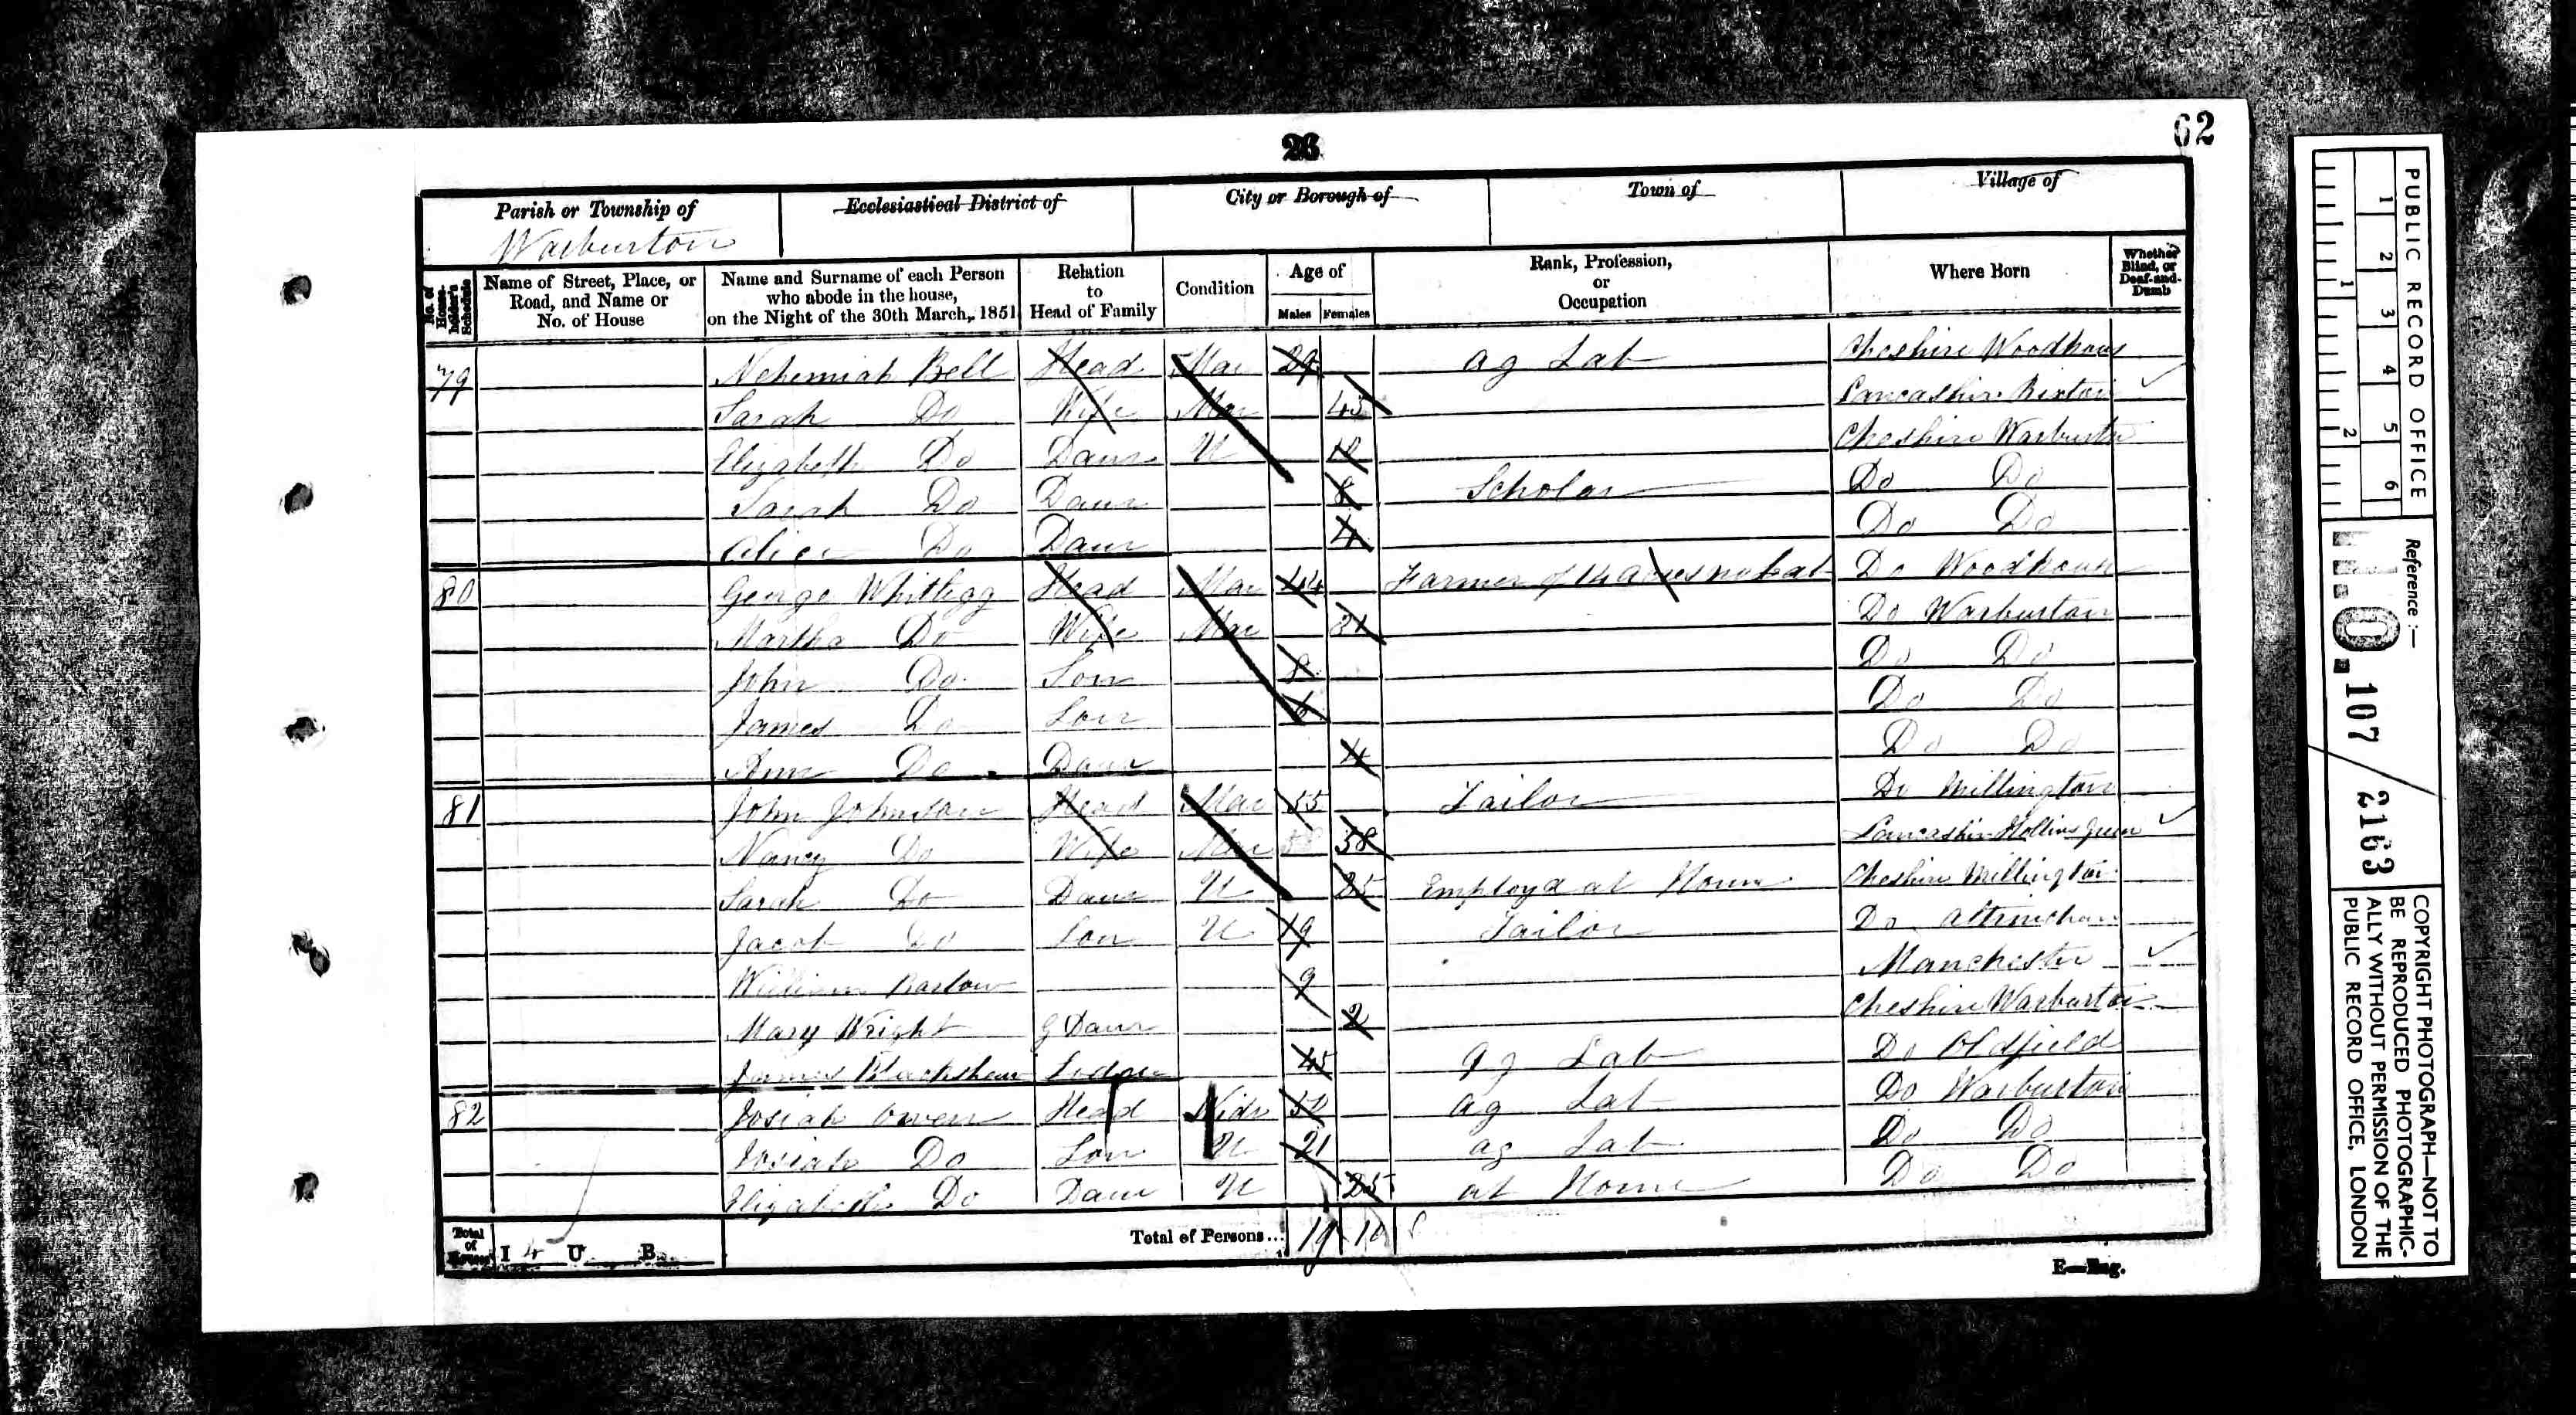 26
62
Parish or Township of
Ecclesiastical District of
City or Borough of
Town of
Village of
Warburton
No. of House-holder's Schedule
Name of Street, Place, or Road, and Name or No. of House
Name and Surname of each Person who abode in the house, on the Night of the 30th March, 1851
Relation to Head of Family
Condition
Age of
Males
Females
Rank, Profession, or Occupation
Where Born
Whether Blind, or Deaf-and-Dumb
79 Nehemiah Bell Head Mar Ag Lab Cheshire Woodhous
Sarah Do Wife Mar 45 Lancashire Rixton
Elizabeth Do Daur U Cheshire Warburton
Sarah Do Daur 8 Scholar Do Do
Alice Do Daur 4 Do Do
80 George Whitlegg Head Mar 44 Farmer of 14 acres no Lab Do Woodhouse
Martha Do Wife Mar Do Warburton
John Do Son 8 Do Do
James Do Son 6 Do Do
Ann Do Daur 4 Do Do
81 John Johnson Head Mar 55 Tailor Do Millington
Nancy Do Wife Mar 58 Lancashire Hollins Green
Sarah Do Daur U 25 Employd at Home Cheshire Millington
Jacob Do Son U 19 Tailor Do Altrincham
William Barlow 9 Manchester
Mary Wright G Daur 2 Cheshire Warburton
James Blackshaw Lodger 45 Ag Lab Do Oldfield
82 Josiah Owen Head Widr 50 Ag Lab Do Warburton
Josiah Do Son U 21 Ag Lab Do Do
Elizabeth Do Daur U 25 at Home Do Do
Total of Houses I 4 U B
Total of Persons... 10
E—Eng.
PUBLIC RECORD OFFICE
1 2 3 4 5 6
1 2
Reference :—
H.O. 107 / 2163
COPYRIGHT PHOTOGRAPH—NOT TO
BE REPRODUCED PHOTOGRAPHIC-
ALLY WITHOUT PERMISSION OF THE
PUBLIC RECORD OFFICE, LONDON